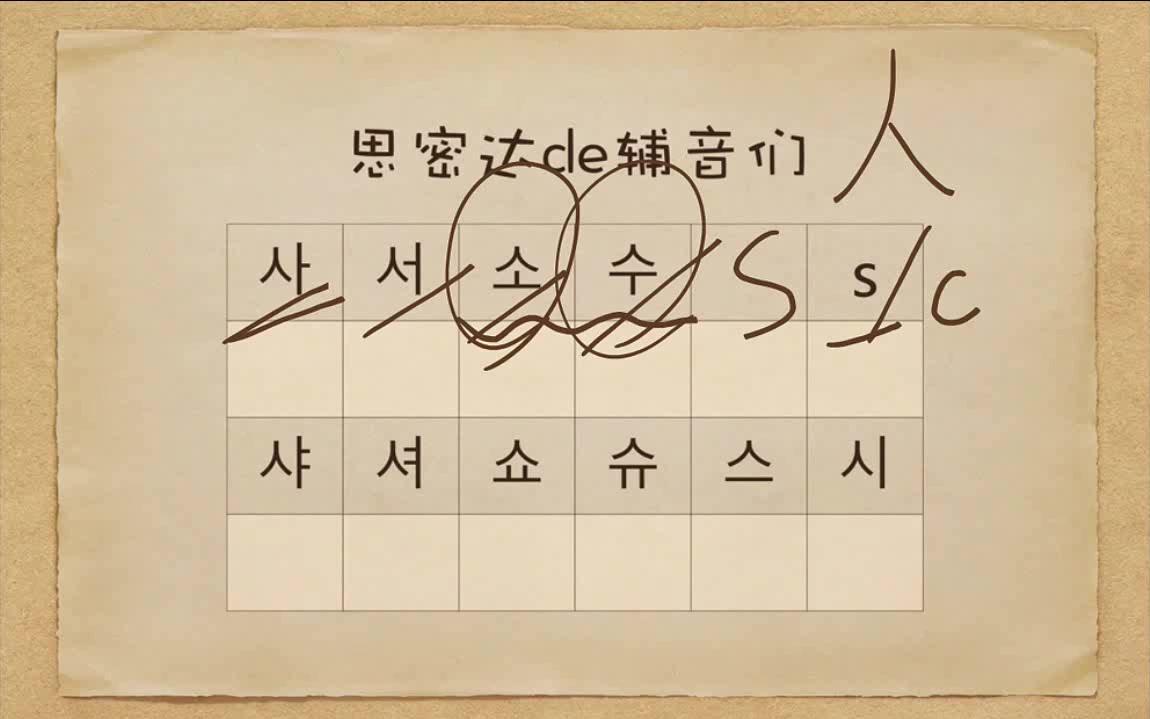 思密达cle辅音们
ㅅ
사 서 소 수 S s/c
샤 셔 쇼 슈 스 시